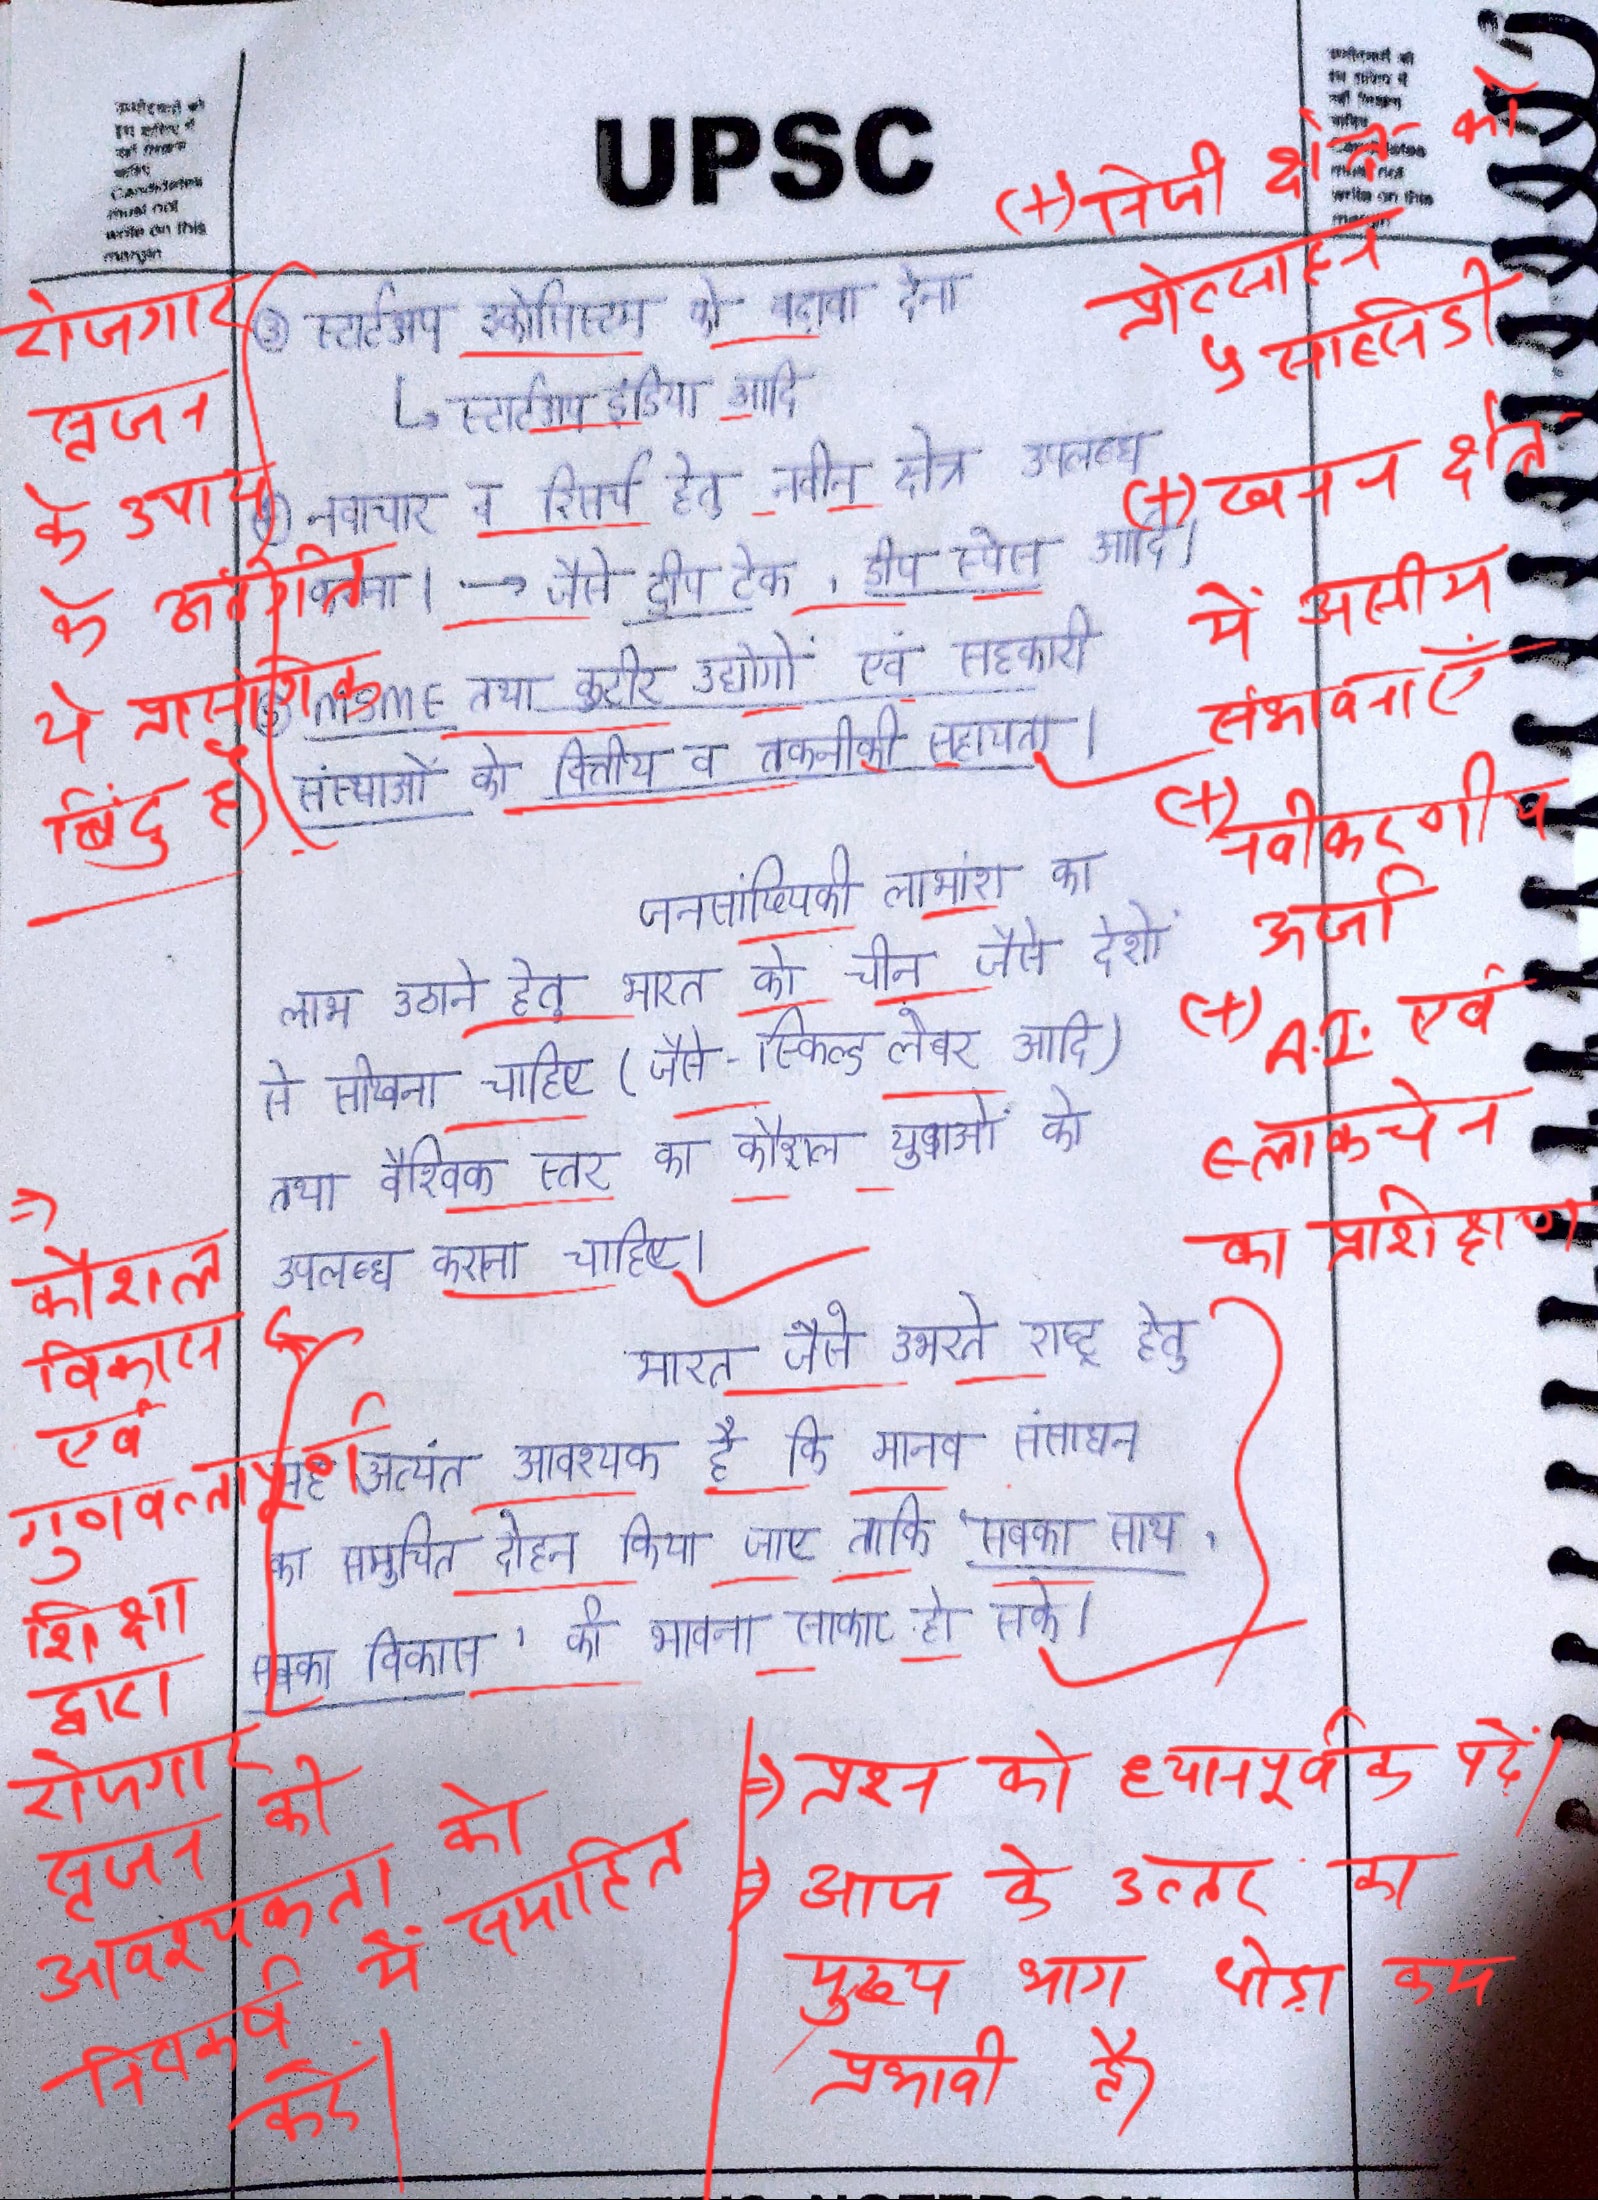 उम्मीदवारों को
इस हाशिए में
नहीं लिखना
चाहिए
Candidates
must not
write on this
margin
UPSC
उम्मीदवारों को
इस हाशिए में
नहीं लिखना
चाहिए
Candidates
must not
write on this
margin
③ स्टार्टअप इकोसिस्टम को बढ़ावा देना
↳ स्टार्टअप इंडिया आदि
④ नवाचार व रिसर्च हेतु नवीन क्षेत्र उपलब्ध
कराना। → जैसे डीप टेक, डीप स्पेस आदि।
⑤ MSME तथा कुटीर उद्योगों एवं सहकारी
संस्थाओं को वित्तीय व तकनीकी सहायता।
जनसांख्यिकी लाभांश का
लाभ उठाने हेतु भारत को चीन जैसे देशों
से सीखना चाहिए (जैसे - स्किल्ड लेबर आदि)
तथा वैश्विक स्तर का कौशल युवाओं को
उपलब्ध कराना चाहिए।
भारत जैसे उभरते राष्ट्र हेतु
यह अत्यंत आवश्यक है कि मानव संसाधन
का समुचित दोहन किया जाए ताकि 'सबका साथ,
सबका विकास' की भावना साकार हो सके।
रोजगार
सृजन
के उपाय
के अंतर्गत
ये प्रासंगिक
बिंदु है)
⇒
कौशल
विकास
एवं
गुणवत्तापूर्ण
शिक्षा
द्वारा
रोजगार
सृजन की
आवश्यकता को
निष्कर्ष में समाहित
करें।
(+) निजी क्षेत्र को
प्रोत्साहन
↳ सब्सिडी
(+) खनन क्षेत्र
में असीम
संभावनाएँ
(+) नवीकरणीय
ऊर्जा
(+) A.I. एवं
ब्लाकचेन
का प्रशिक्षण
⇒ प्रश्न को ध्यानपूर्वक पढ़ें।
⇒ आज के उत्तर का
मुख्य भाग थोड़ा कम
प्रभावी है)